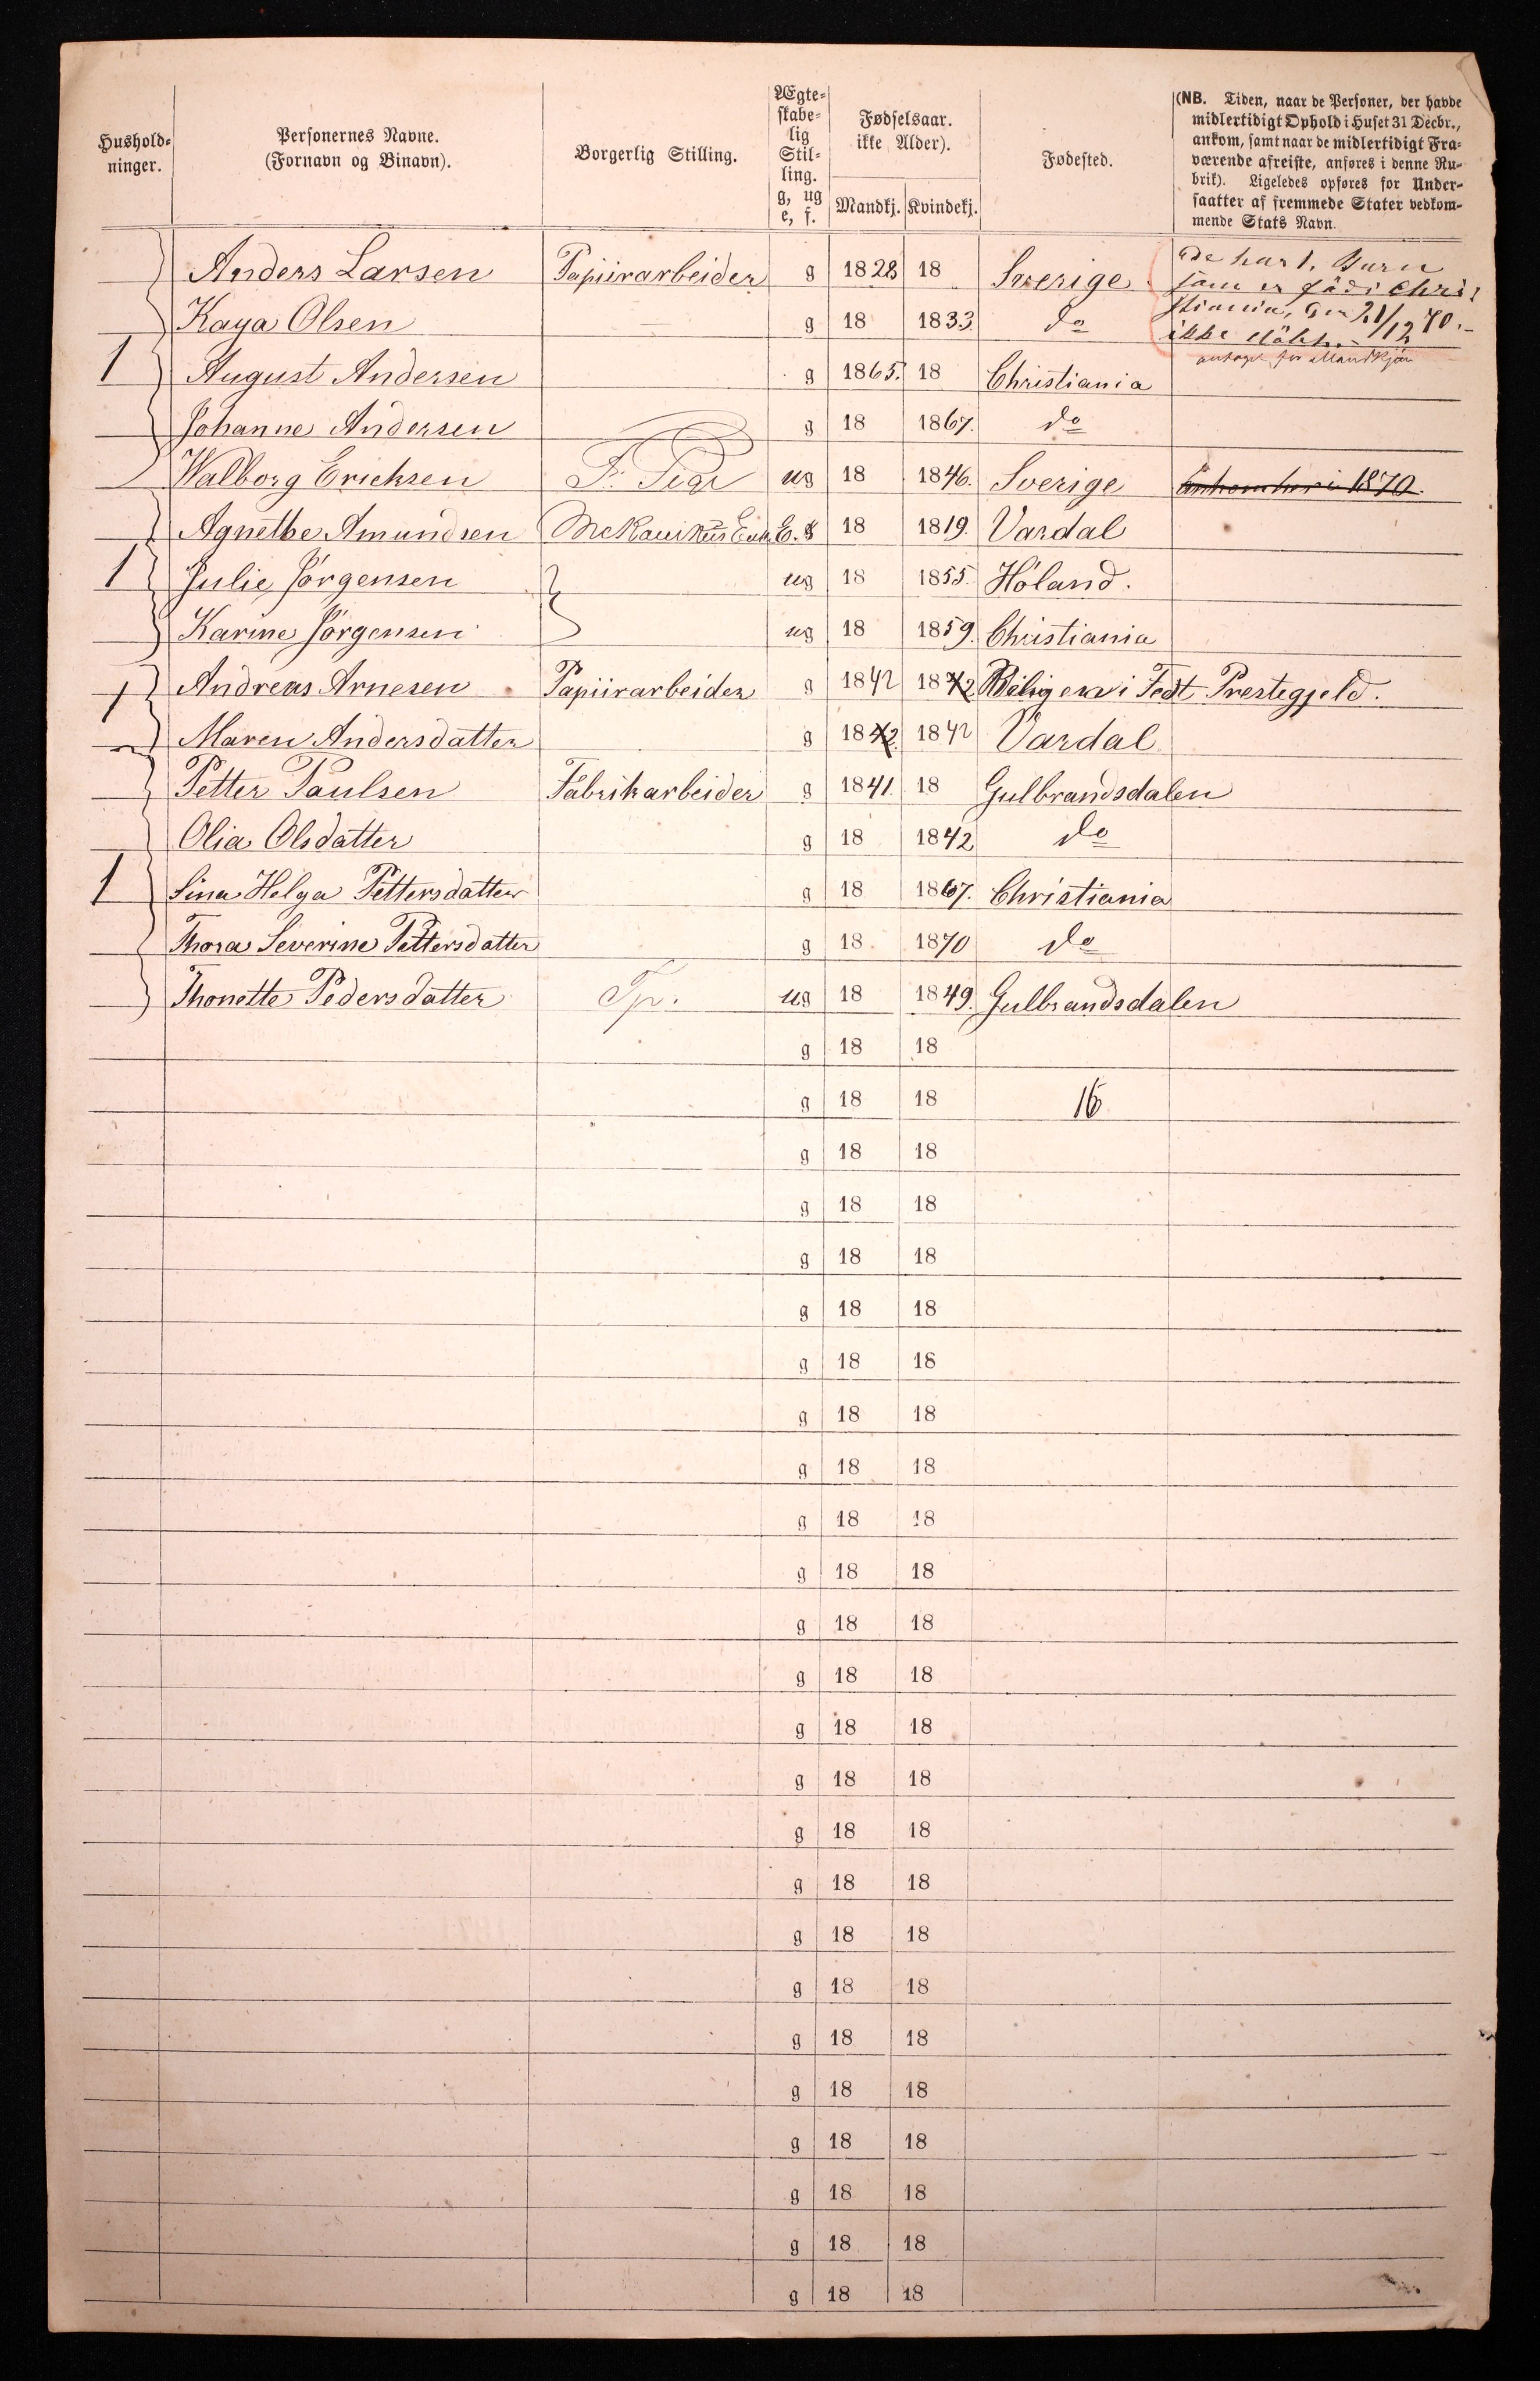 Hushold-
ninger.
Personernes Navne.
(Fornavn og Binavn).
Borgerlig Stilling.
Ægte-
skabe-
lig
Stil-
ling.
g, ug
e, f.
Fødselsaar.
ikke Alder).
Mandkj. Kvindekj.
Fødested.
(NB. Tiden, naar de Personer, der havde
midlertidigt Ophold i Huset 31 Decbr.,
ankom, samt naar de midlertidigt Fra-
værende afreiste, anføres i denne Ru-
brik). Ligeledes opføres for Under-
saatter af fremmede Stater vedkom-
mende Stats Navn.
Anders Larsen Papiirarbeider g 1828 18 Sverige de har 1. Barn
som er född i Chri-
stiania, den 21/12 70.-
ikke
Kaya Olsen — g 18 1833. do
antaget for Mandkjön
1 August Andersen g 1865. 18 Christiania
Johanne Andersen g 18 1867. do
Walborg Ericksen T. Pige ug 18 1846. Sverige Ankommer i 1870.
Agnethe Amundsen Mekanikus Enke E. g 18 1819. Vardal
1 Julie Jørgensen ug 18 1855. Höland.
Karine Jørgensen ug 18 1859. Christiania
1 Andreas Arnesen Papiirarbeider g 1842 1842 i Fedt Prestegjeld.
Maren Andersdatter g 1842 1842 Vardal
Petter Paulsen Fabrikarbeider g 1841. 18 Gulbrandsdalen
Olia Olsdatter g 18 1842 do
1 Lina Helga Pettersdatter g 18 1867. Christiania
Thora Severine Pettersdatter g 18 1870 do
Thonette Pedersdatter Tp. ug 18 1849. Gulbrandsdalen
g 18 18
g 18 18 16
g 18 18
g 18 18
g 18 18
g 18 18
g 18 18
g 18 18
g 18 18
g 18 18
g 18 18
g 18 18
g 18 18
g 18 18
g 18 18
g 18 18
g 18 18
g 18 18
g 18 18
g 18 18
g 18 18
g 18 18
g 18 18
g 18 18
g 18 18